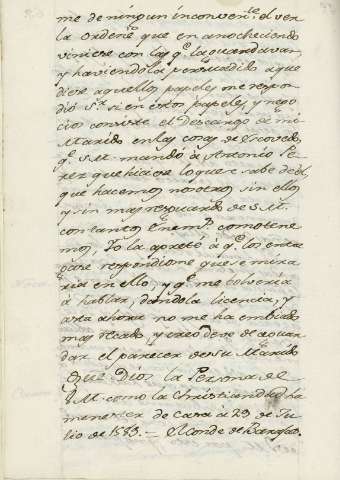 me de ningun inconven.te el ver
la orden q.e que en anocheciendo
viniese con los q.e la guardavan,
y haviendola persuadido a que
diese aquellos papeles me respon
dió S.r si en estos papeles, y nego
cios consiste el Descargo de mi
Marido en las cosas de Escovedo,
q.e S.M. mandó à Antonio Pe
rez que hiciese lo que se sabe de èl
que hacemos nosotros sin ellos
y sin mas resguardo de S.M.
con tantos Enem.os como tene
mos, Yo la apreté à q.e los entre
gase respondiome que se mira
ria en ello, y q.e me volveria
à hablar, dandola licencia, y
asta ahora no me ha embiado
mas recado, y creo deve de aguar
dar el parecer de su Marido
Gue. Dios la Persona de
V.M. como la Christiandad ha
menester de Casa à 29 de Ju
lio de 1585. = El Conde de Barajas.